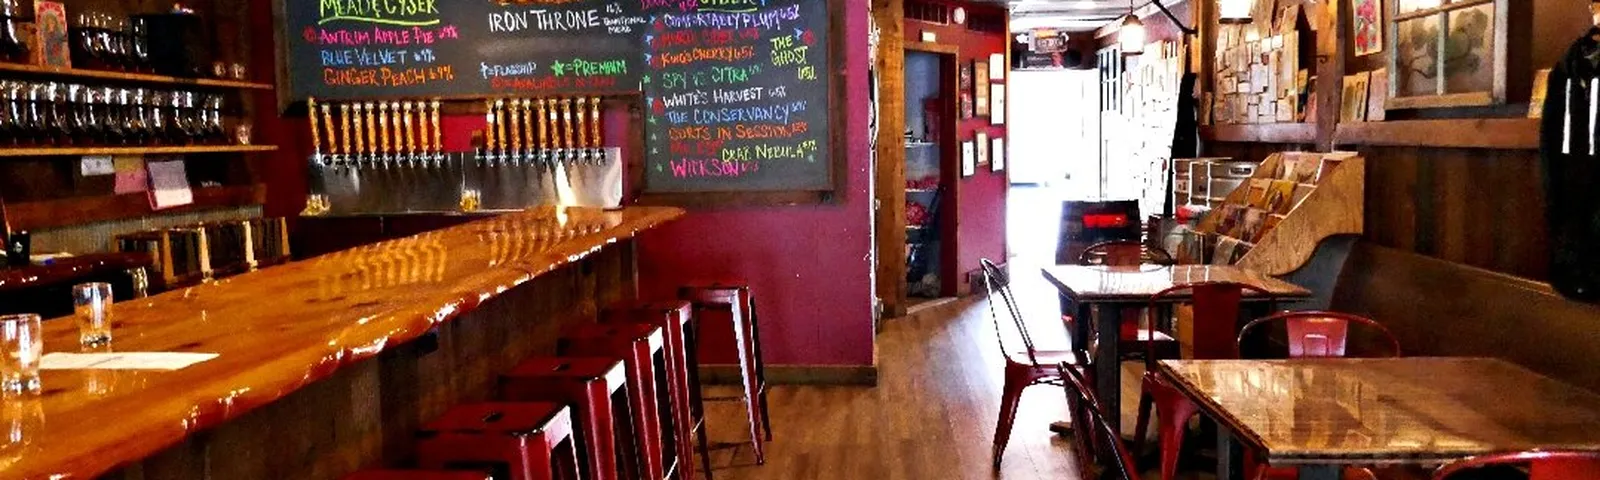 MEAD & CYSER
ANTRIM APPLE PIE 6.9%
BLUE VELVET 6.9%
GINGER PEACH 6.9%
IRON THRONE
TRADITIONAL
MEAD
=FLAGSHIP
=PREMIUM
COMFORTABLY PLUM 6.5%
KINGS CHERRY 6.5%
THE
GHOST
SPY VS. CITRA
WHITE'S HARVEST 6.5%
THE CONSERVANCY
SORTS IN SESSION
CRAB NEBULA
WICKSON